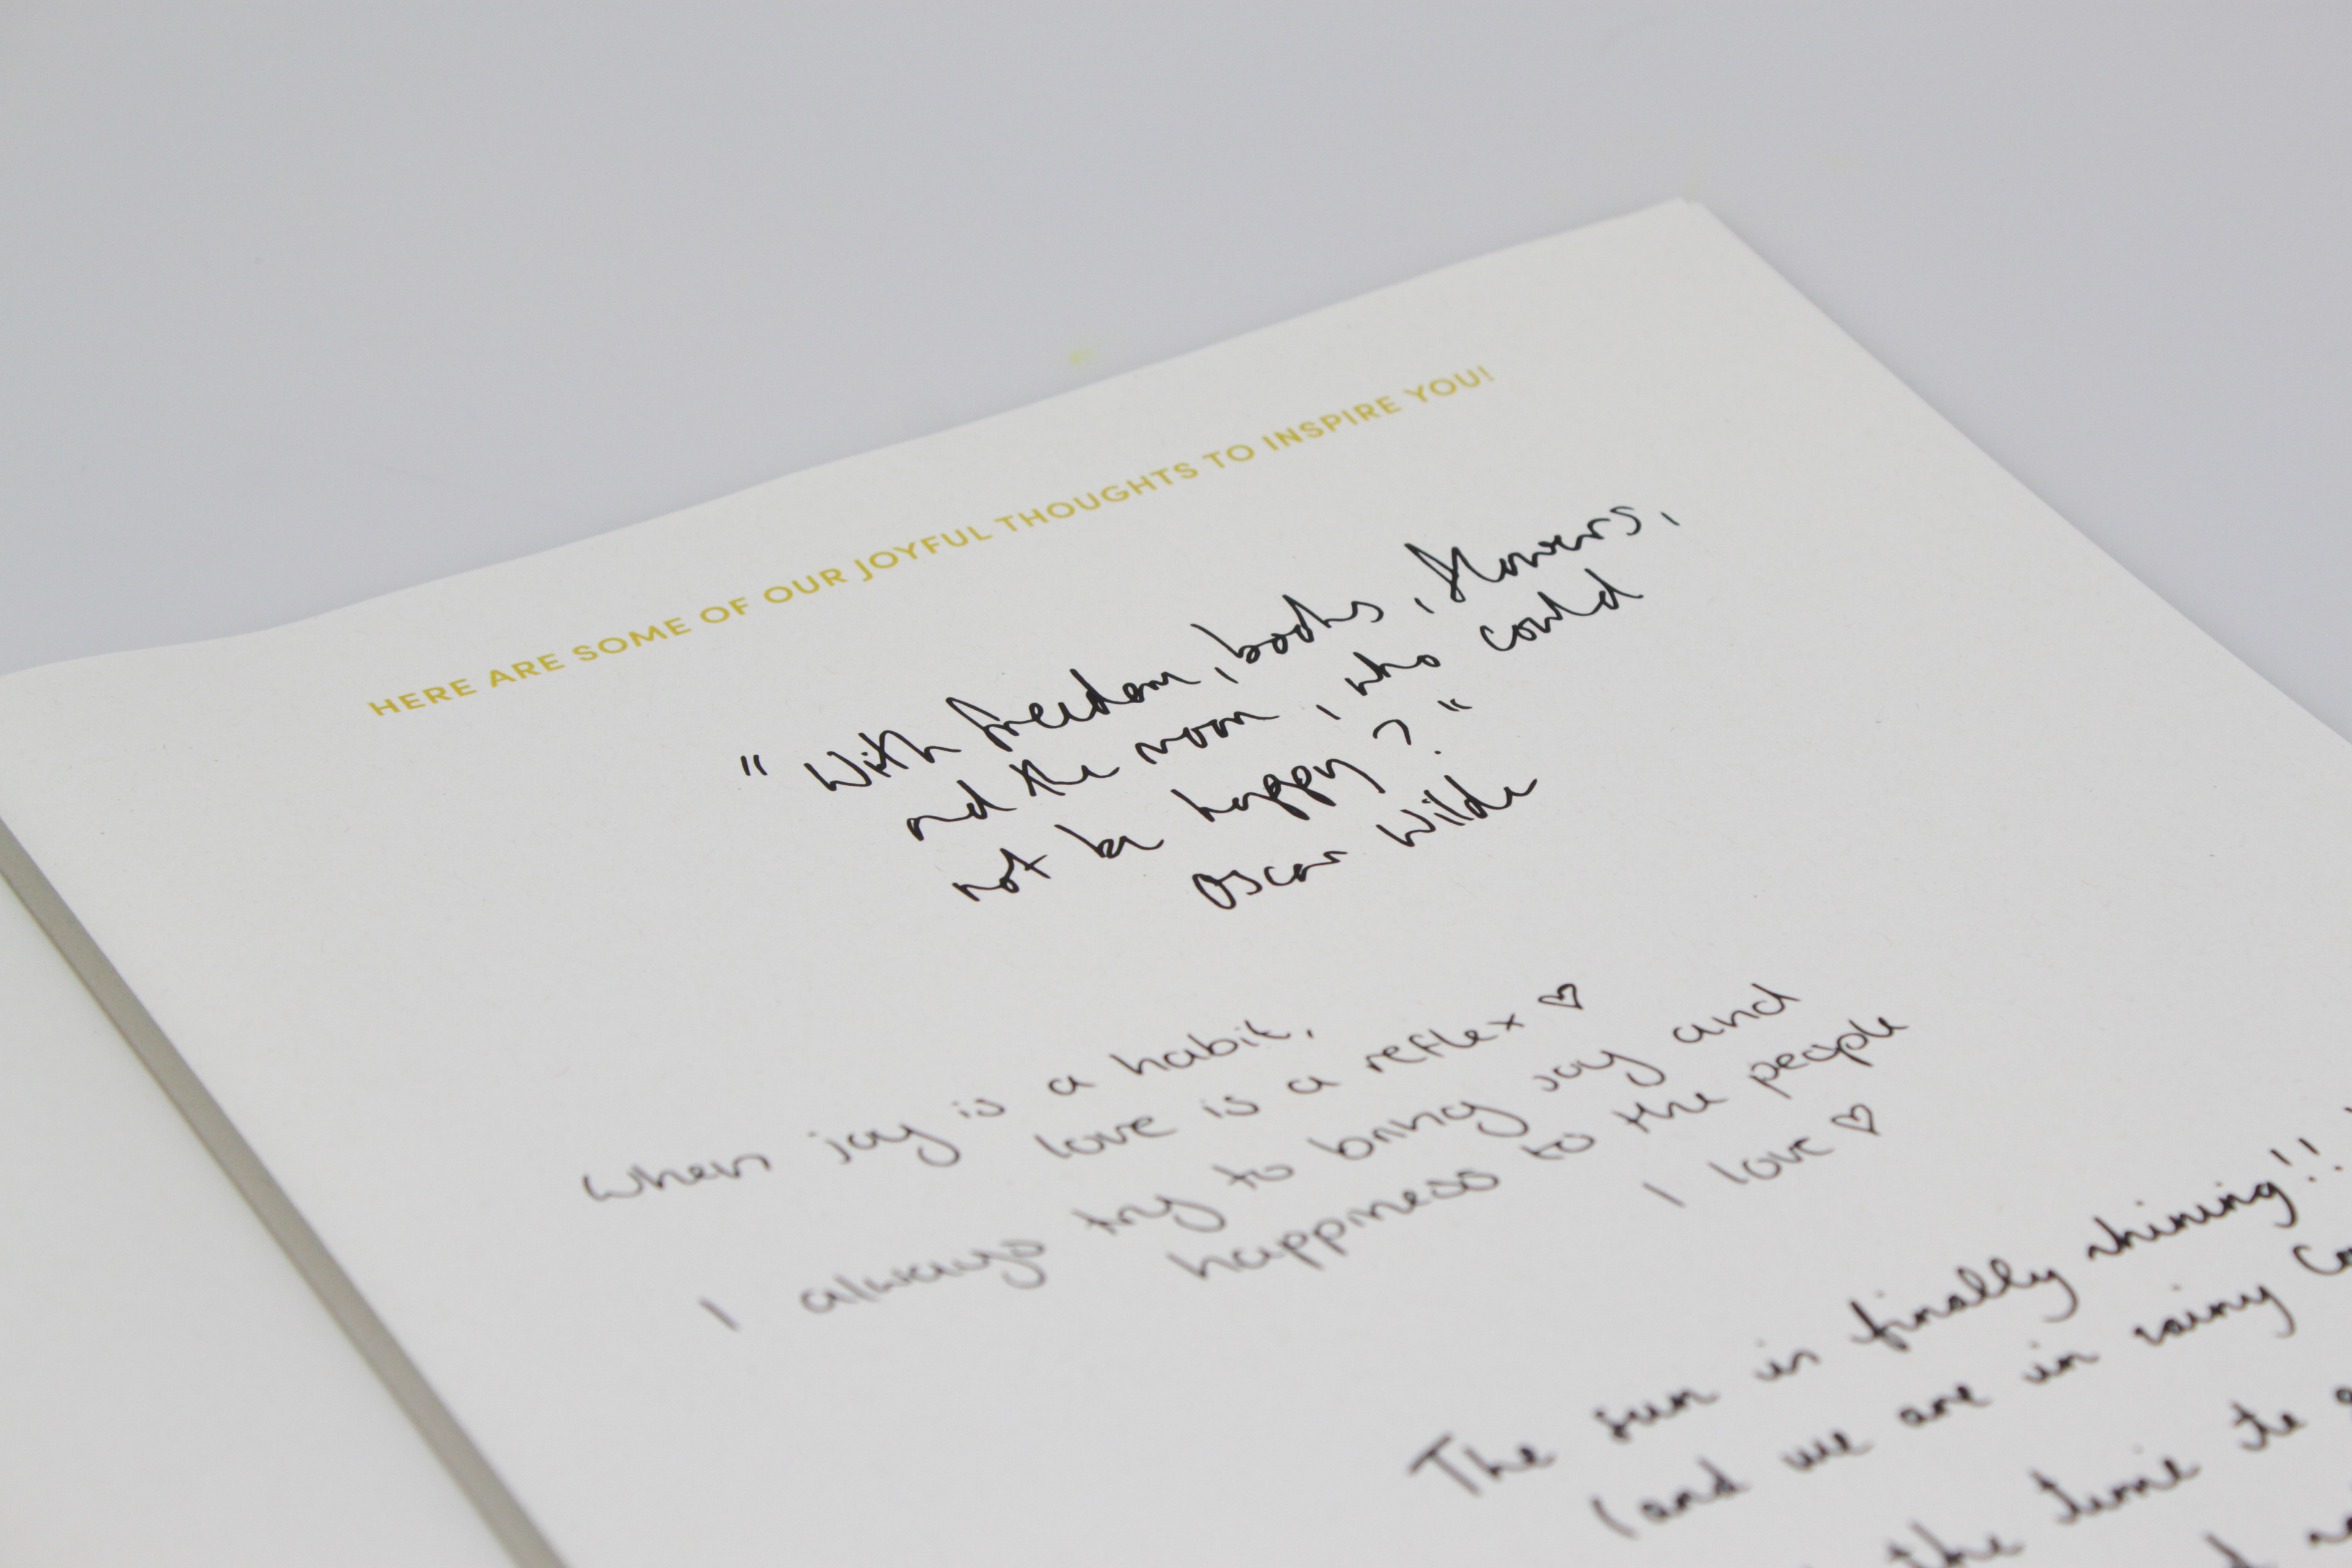 HERE ARE SOME OF OUR JOYFUL THOUGHTS TO INSPIRE YOU!
" With freedom, books, flowers,
and the moon, who could
not be happy? "
Oscar Wilde
When joy is a habit,
love is a reflex ♡
I always try to bring joy and
happiness to the people
I love ♡
The sun is finally shining!!
(and we are in rainy
the time to